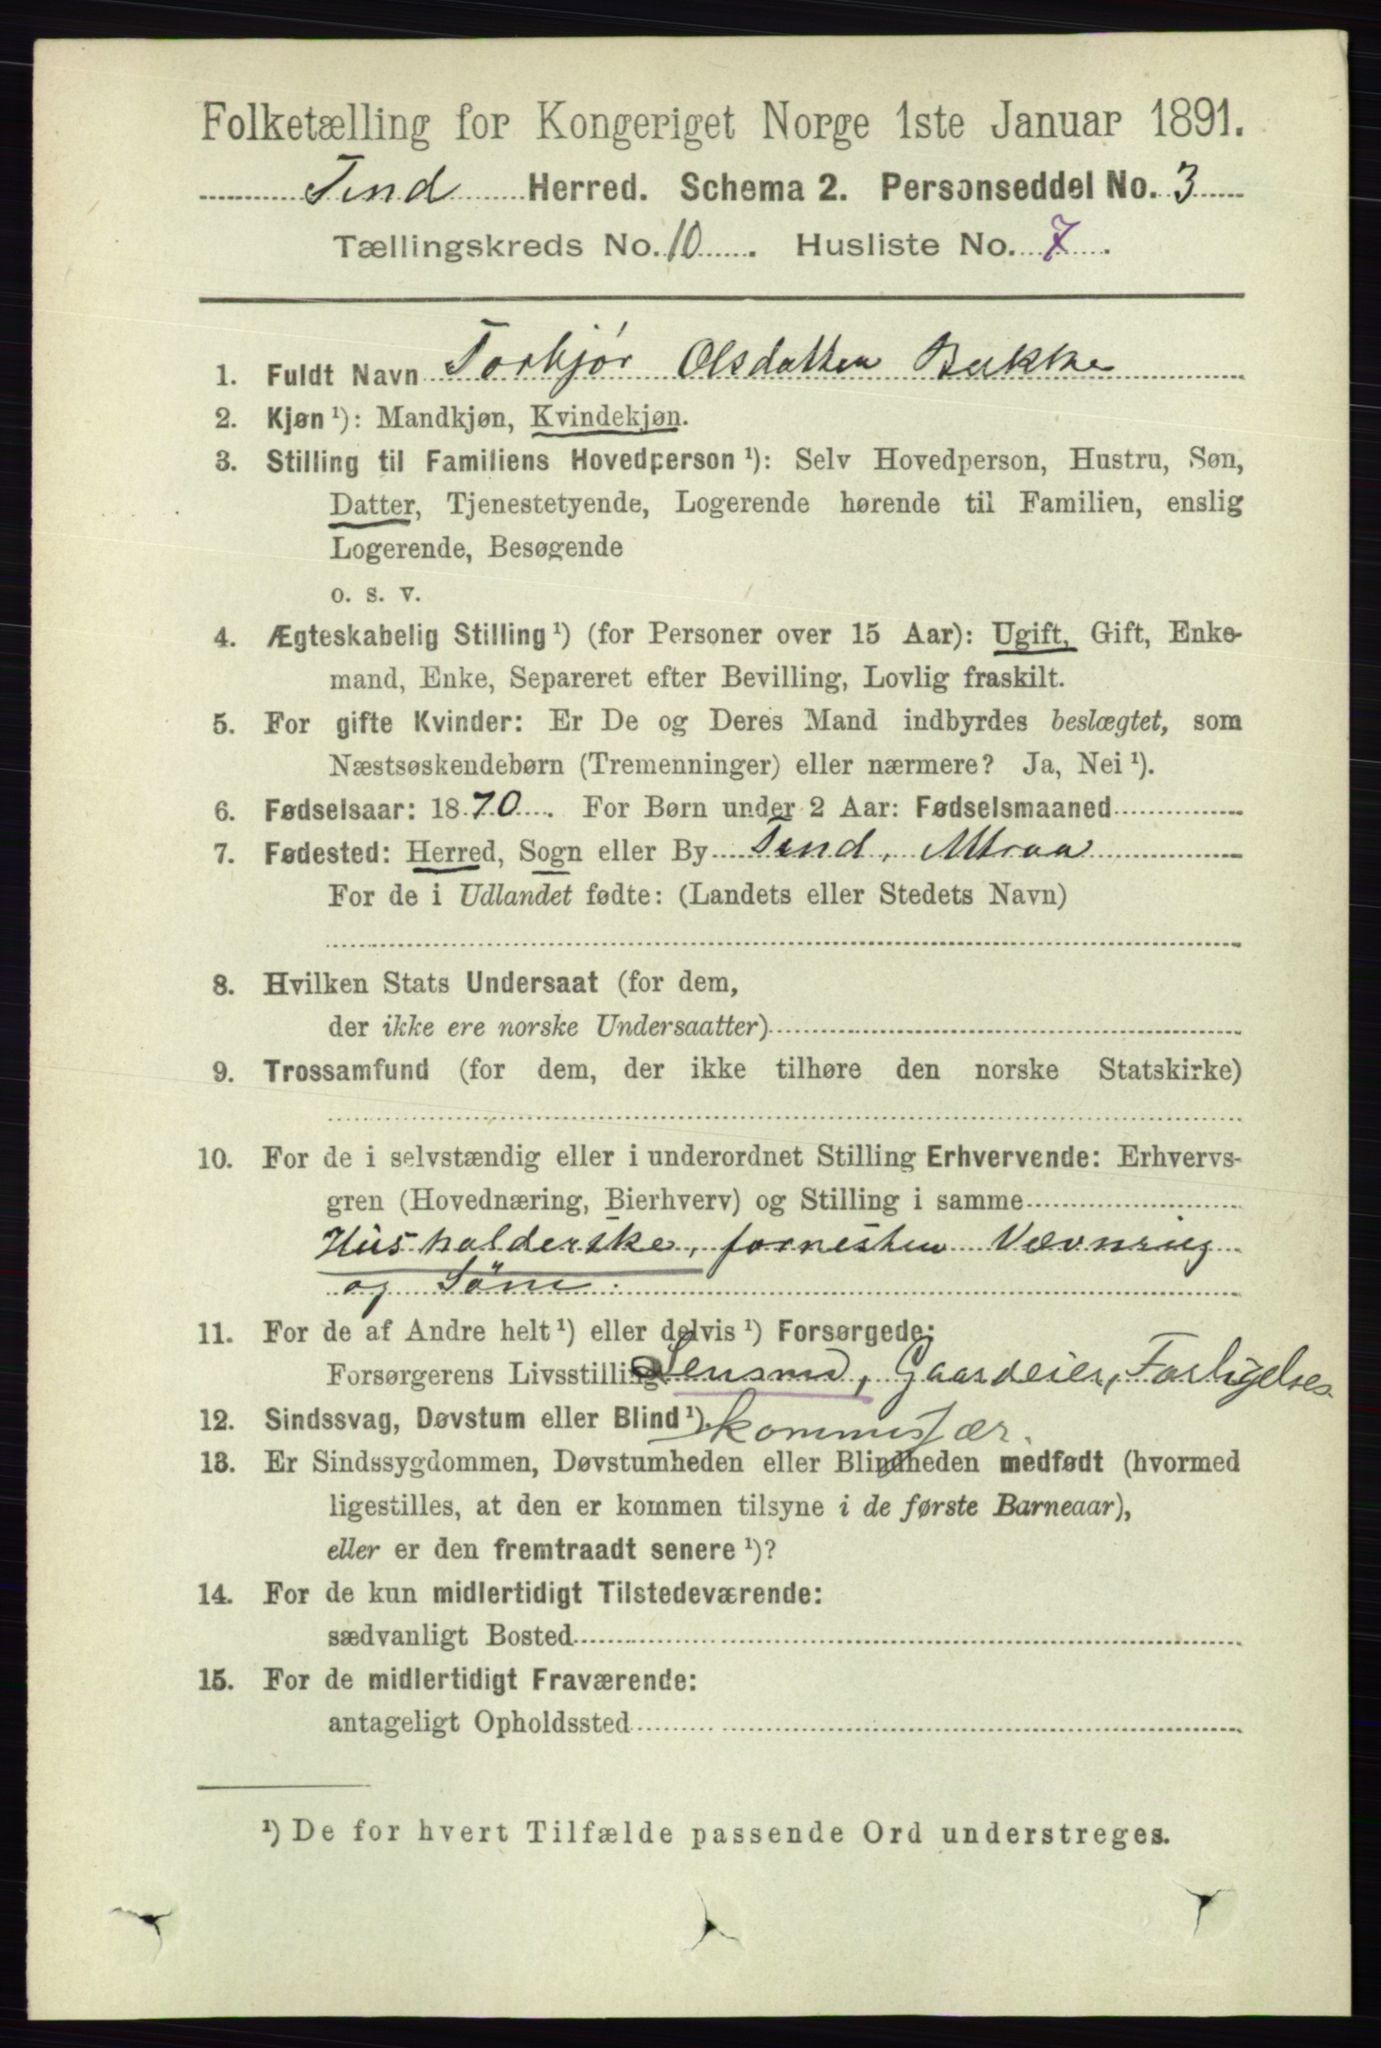 Folketælling for Kongeriget Norge 1ste Januar 1891.
Tind Herred. Schema 2. Personseddel No. 3
Tællingskreds No. 10. Husliste No. 7.
1. Fuldt Navn Torbjør Olsdatter Bakke
2. Kjøn ¹): Mandkjøn, Kvindekjøn.
3. Stilling til Familiens Hovedperson ¹): Selv Hovedperson, Hustru, Søn,
Datter, Tjenestetyende, Logerende hørende til Familien, enslig
Logerende, Besøgende
o. s. v.
4. Ægteskabelig Stilling ¹) (for Personer over 15 Aar): Ugift, Gift, Enke-
mand, Enke, Separeret efter Bevilling, Lovlig fraskilt.
5. For gifte Kvinder: Er De og Deres Mand indbyrdes beslægtet, som
Næstsøskendebørn (Tremenninger) eller nærmere? Ja, Nei ¹).
6. Fødselsaar: 1870. For Børn under 2 Aar: Fødselsmaaned
7. Fødested: Herred, Sogn eller By Tind, Attraa
For de i Udlandet fødte: (Landets eller Stedets Navn)
8. Hvilken Stats Undersaat (for dem,
der ikke ere norske Undersaatter)
9. Trossamfund (for dem, der ikke tilhøre den norske Statskirke)
10. For de i selvstændig eller i underordnet Stilling Erhvervende: Erhvervs-
gren (Hovednæring, Bierhverv) og Stilling i samme
Husholderske, fornesten Vævning
og Søm
11. For de af Andre helt ¹) eller delvis ¹) Forsørgede:
Forsørgerens Livsstilling Lensmd, Gaardeier, Forligelses
12. Sindssvag, Døvstum eller Blind ¹). kommisær.
13. Er Sindssygdommen, Døvstumheden eller Blindheden medfødt (hvormed
ligestilles, at den er kommen tilsyne i de første Barneaar),
eller er den fremtraadt senere ¹)?
14. For de kun midlertidigt Tilstedeværende:
sædvanligt Bosted
15. For de midlertidigt Fraværende:
antageligt Opholdssted
¹) De for hvert Tilfælde passende Ord understreges.